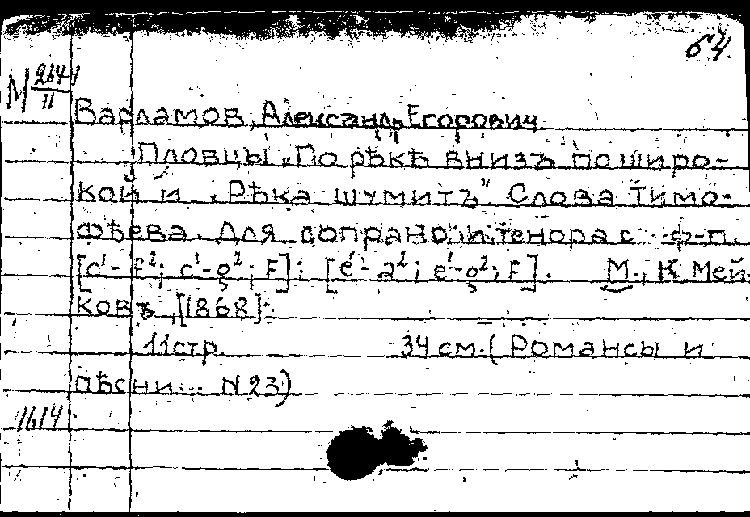 64.
М 264/II
Варламов, Александр Егорович
Пловцы „По рѣкѣ внизъ по широ-
кой и „Рѣка шумитъ" Слова Тимо-
фѣева. Для сопрано и тенора с ф-п.
[c¹- f²; c¹-g²; F]; [e¹- a²; e¹-g²; F]. М., К. Мей-
ковъ, [1868].
11 стр. 34 см. (Романсы и
пѣсни... N 23)
1614